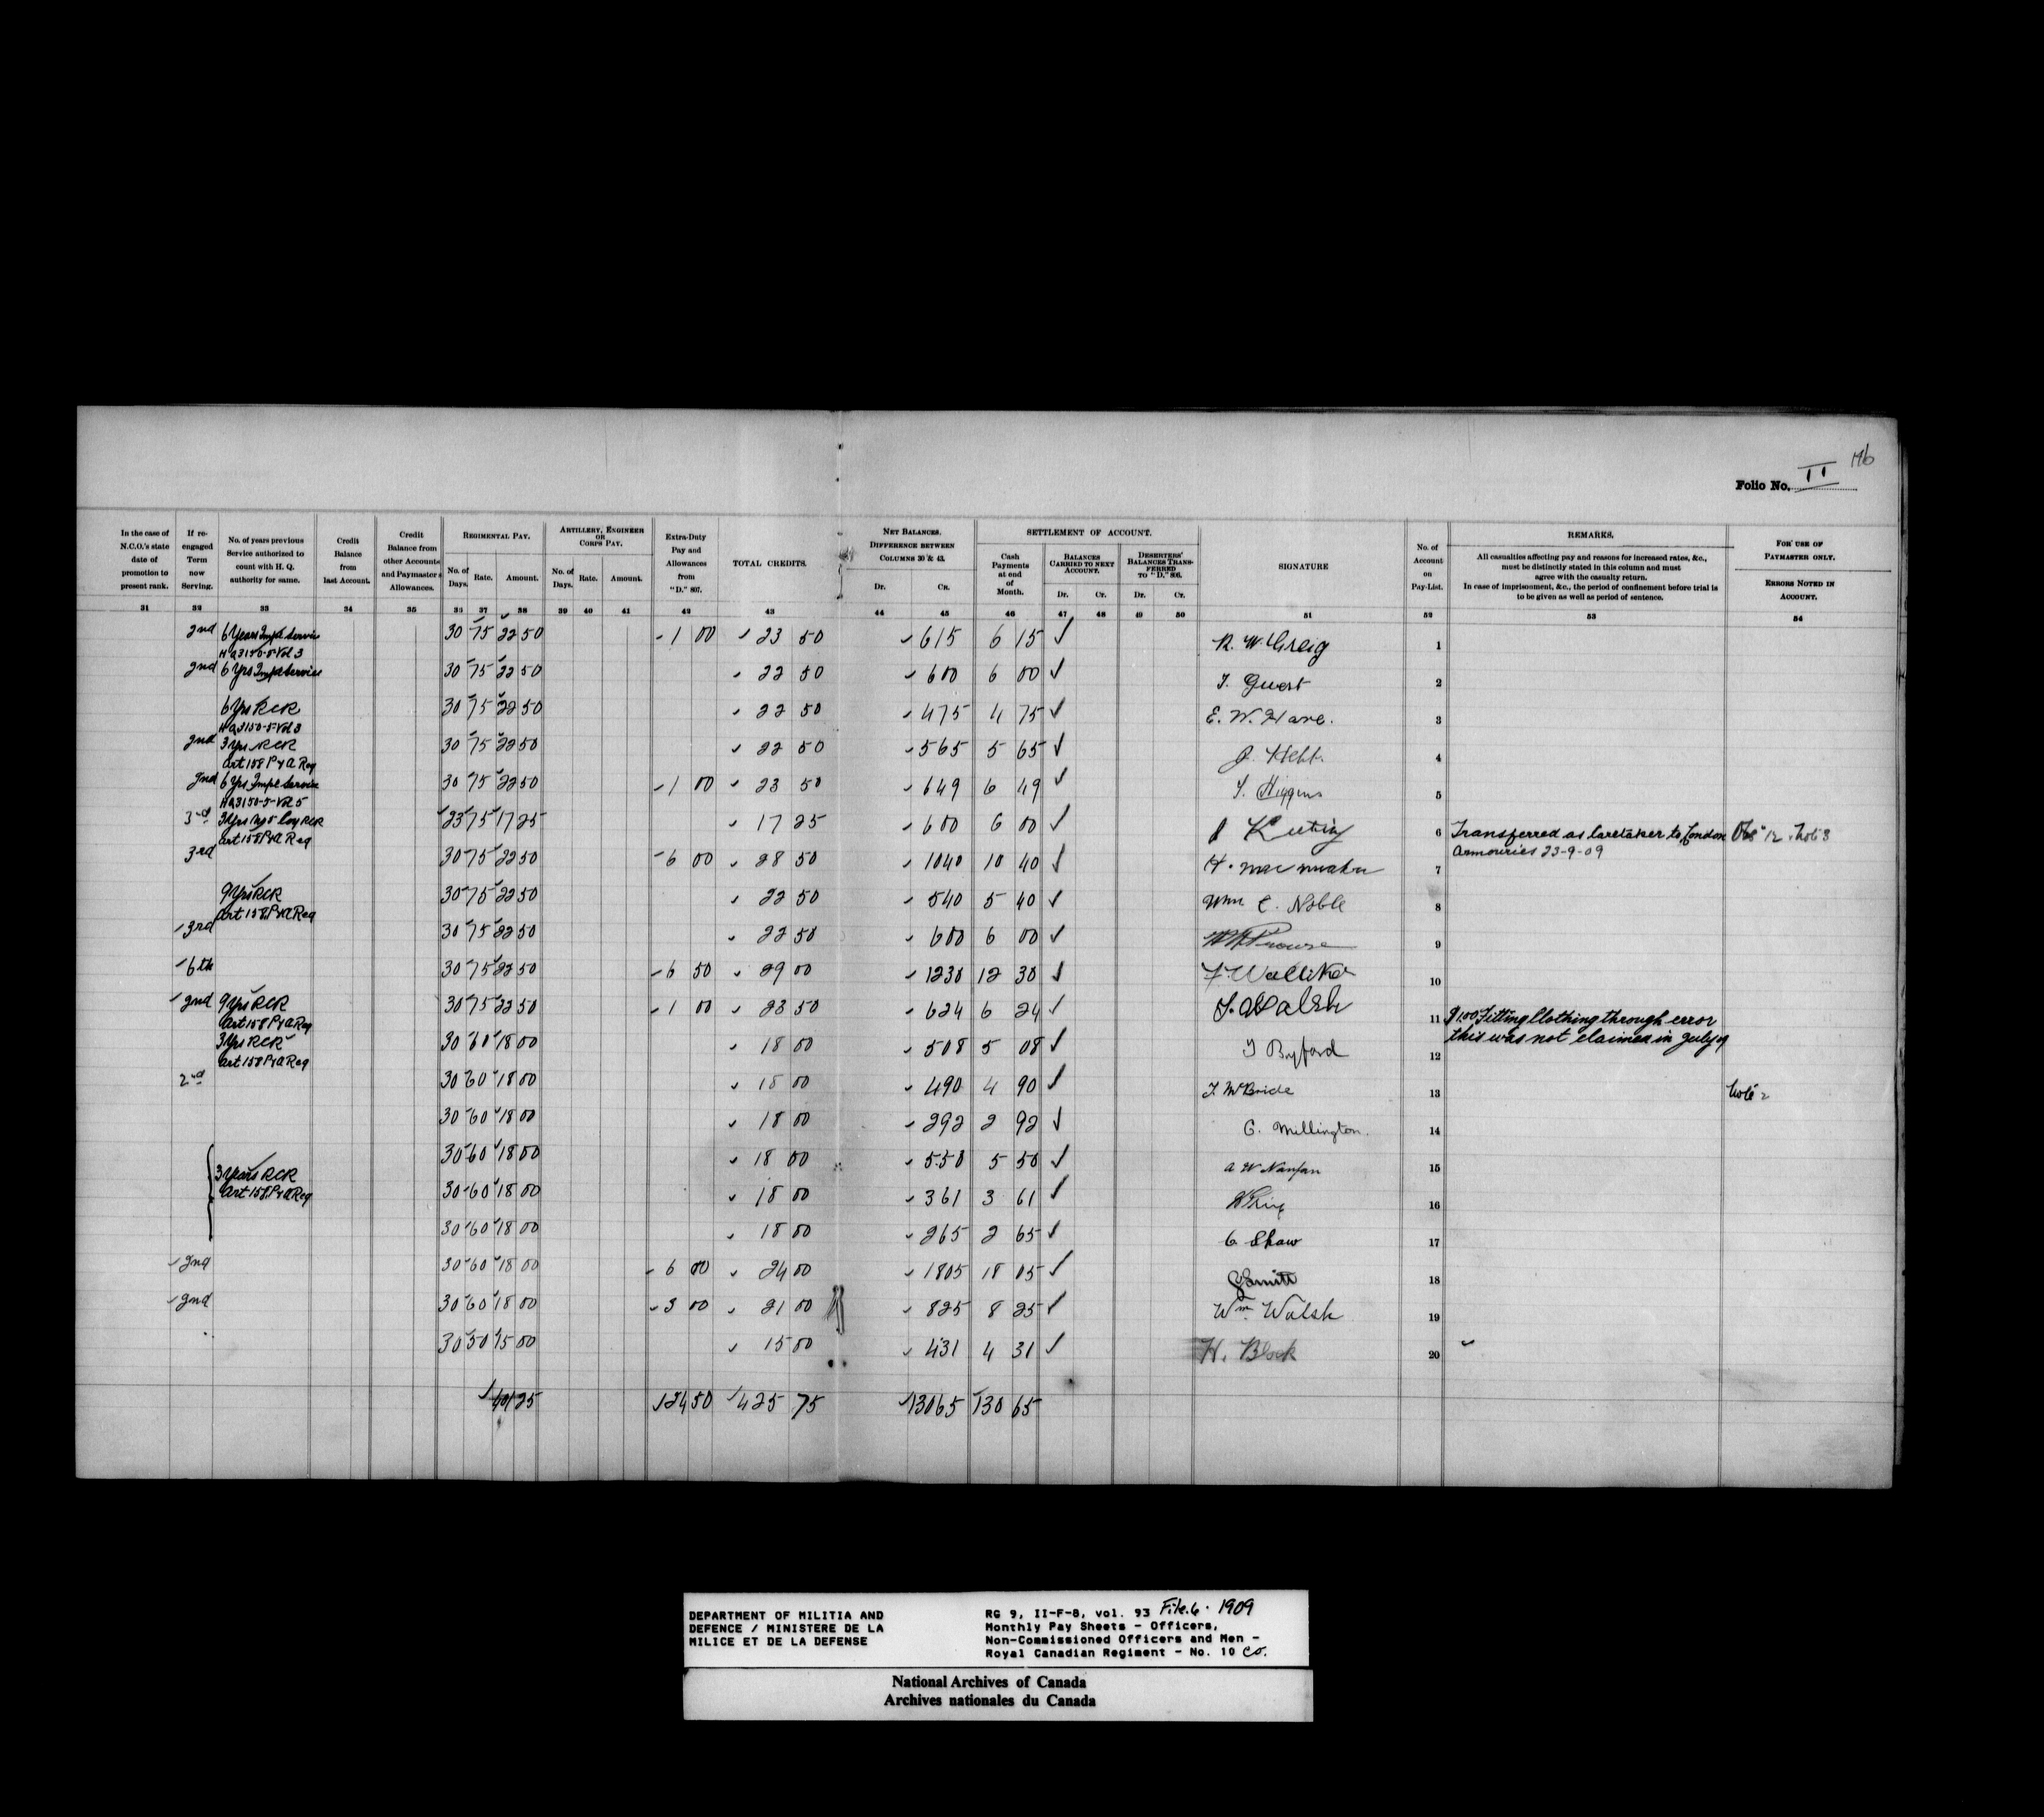 146
Folio No. II
In the case of N.C.O.'s state date of promotion to present rank.
If re-engaged Term now Serving.
No. of years previous Service authorized to count with H. Q. authority for same.
Credit Balance from last Account.
Credit Balance from other Accounts and Paymaster's Allowances.
REGIMENTAL PAY.
No. of Days. Rate. Amount.
ARTILLERY, ENGINEER OR CORPS PAY.
No. of Days. Rate. Amount.
Extra-Duty Pay and Allowances from "D." 807.
TOTAL CREDITS.
NET BALANCES. DIFFERENCE BETWEEN COLUMNS 30 & 43.
Dr. Cr.
SETTLEMENT OF ACCOUNT.
Cash Payments at end of Month.
BALANCES CARRIED TO NEXT ACCOUNT.
Dr. Cr.
DESERTERS' BALANCES TRANSFERRED TO "D." 806.
Dr. Cr.
SIGNATURE
No. of Account on Pay-List.
REMARKS.
All casualties affecting pay and reasons for increased rates, &c., must be distinctly stated in this column and must agree with the casualty return.
In case of imprisonment, &c., the period of confinement before trial is to be given as well as period of sentence.
FOR USE OF PAYMASTER ONLY.
ERRORS NOTED IN ACCOUNT.
31 32 33 34 35 36 37 38 39 40 41 42 43 44 45 46 47 48 49 50 51 52 53 54
2nd 6 Years Impl Service 30 75 22 50 1 00 23 50 6 15 6 15 ✓ R. W. Greig 1
HQ 3150-5-Vol 3
2nd 6 Yrs Impl Service 30 75 22 50 22 50 6 00 6 00 ✓ T. Guest 2
6 Yrs RCR 30 75 22 50 22 50 4 75 4 75 ✓ E. W. Hare. 3
HQ 3150-5-Vol 3
2nd 3 Yrs RCR 30 75 22 50 22 50 5 65 5 65 ✓ J. Hebb. 4
Art 158 P & A Reg
2nd 6 Yrs Impl Service 30 75 22 50 1 00 23 50 6 49 6 49 ✓ T. Higgins 5
HQ 3150-5-Vol 5
3rd RCR 23 75 17 25 17 25 6 00 6 00 ✓ 6 Transferred as Caretaker to London
Art 158 P & A Reg Armouries 23-9-09
3rd 30 75 22 50 6 00 28 50 10 40 10 40 ✓ 7
9 Yrs RCR 30 75 22 50 22 50 5 40 5 40 ✓ Wm C. Noble 8
Art 158 P & A Reg
3rd 30 75 22 50 22 50 6 00 6 00 ✓ 9
6th 30 75 22 50 6 50 29 00 12 30 12 30 ✓ 10
2nd 9 Yrs RCR 30 75 22 50 1 00 23 50 6 24 6 24 ✓ T. Walsh 11 $1.00 Fitting Clothing through error
Art 158 P & A Reg this was not claimed in July 09
3 Yrs RCR 30 60 18 00 18 00 5 08 5 08 ✓ T Byford 12
Art 158 P & A Reg
2nd 30 60 18 00 18 00 4 90 4 90 ✓ T. McBride 13 Note 2
30 60 18 00 18 00 2 92 2 92 ✓ G. Millington. 14
30 60 18 00 18 00 5 50 5 50 ✓ A W Nanfan 15
3 Years RCR 30 60 18 00 18 00 3 61 3 61 ✓ 16
Art 158 P & A Reg
30 60 18 00 18 00 2 65 2 65 ✓ C Shaw 17
2nd 30 60 18 00 6 00 24 00 18 05 18 05 ✓ Smith 18
2nd 30 60 18 00 3 00 21 00 8 25 8 25 ✓ Wm Walsh 19
30 50 15 00 15 00 4 31 4 31 ✓ H. Block 20
401 25 24 50 425 75 130 65 130 65
DEPARTMENT OF MILITIA AND
DEFENCE / MINISTERE DE LA
MILICE ET DE LA DEFENSE
RG 9, II-F-8, vol. 93 File.6. 1909
Monthly Pay Sheets - Officers,
Non-Commissioned Officers and Men -
Royal Canadian Regiment - No. 10 Co.
National Archives of Canada
Archives nationales du Canada